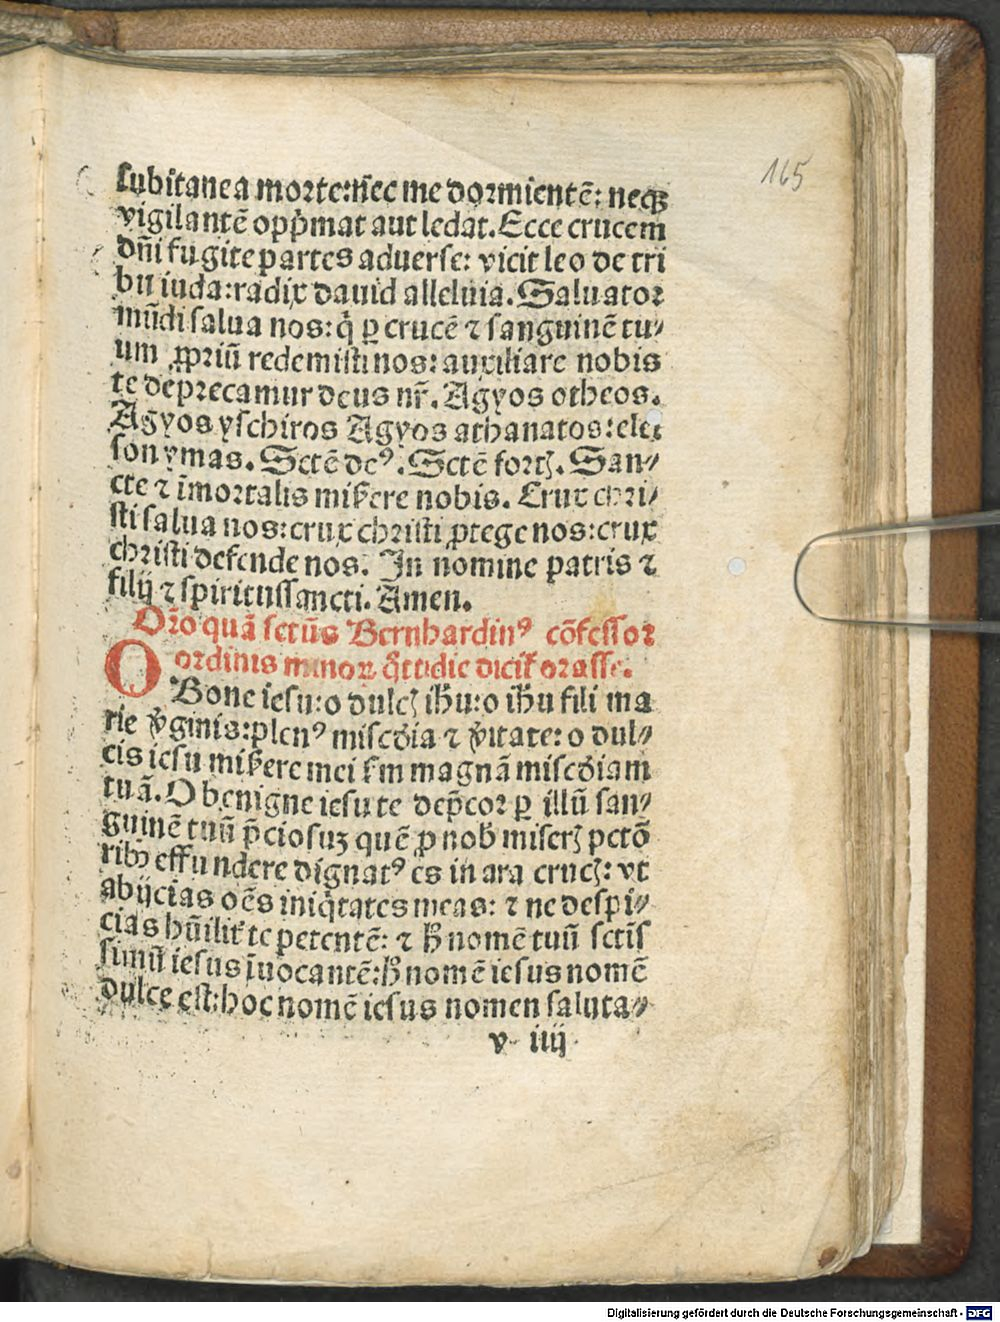 165
ſubitanea morte:nec me dormientē: neqꝫ
vigilantē opp̄mat aut ledat. Ecce crucem
dn̄i fugite partes aduerſe: vicit leo de tri
bu iuda:radix dauid alleluia. Saluator
mūdi ſalua nos: q̇ ꝑ crucē ⁊ ſanguinē tu⸗
um ꝓpriū redemiſti nos: auxiliare nobis
te deprecamur deus nr̄. Agyos otheos.
Agyos yſchiros Agyos athanatos: elei
ſon ymas. Sctē deꝰ. Sctē fortꝭ. San⸗
cte ⁊ īmortalis miẜere nobis. Crux chri⸗
ſti ſalua nos: crux chriſti ꝓtege nos: crux
chriſti defende nos. In nomine patris ⁊
filij ⁊ ſpirituſſancti. Amen.
Or̄o quā ſctūs Bernhardinꝰ cōfeſſor
ordinis minoꝝ q̇ttidie dicit̄ oraſſe.
O Bone ieſu: o dulcꝭ ihū: o ihū fili ma
rie v̄ginis: plenꝰ miſcd̄ia ⁊ v̄itate: o dul⸗
cis ieſu miẜere mei ẜm magnā miſcd̄iam
tuā. O benigne ieſu te dep̄cor ꝑ illū ſan⸗
guinē tuū p̄cioſuꝫ quē ꝓ nob̄ miſerꝭ pctō
ribꝫ effundere dignatꝰ es in ara crucꝭ: vt
abijcias oēs iniq̇tates meas: ⁊ ne deſpi⸗
cias hūilit̄ te petentē: ⁊ h̄ nomē tuū ſctīſ
ſimū ieſus īuocantē: h̄ nomē ieſus nomē
dulce eſt: hoc nomē ieſus nomen ſaluta⸗
v iiij
Digitalisierung gefördert durch die Deutsche Forschungsgemeinschaft - DFG